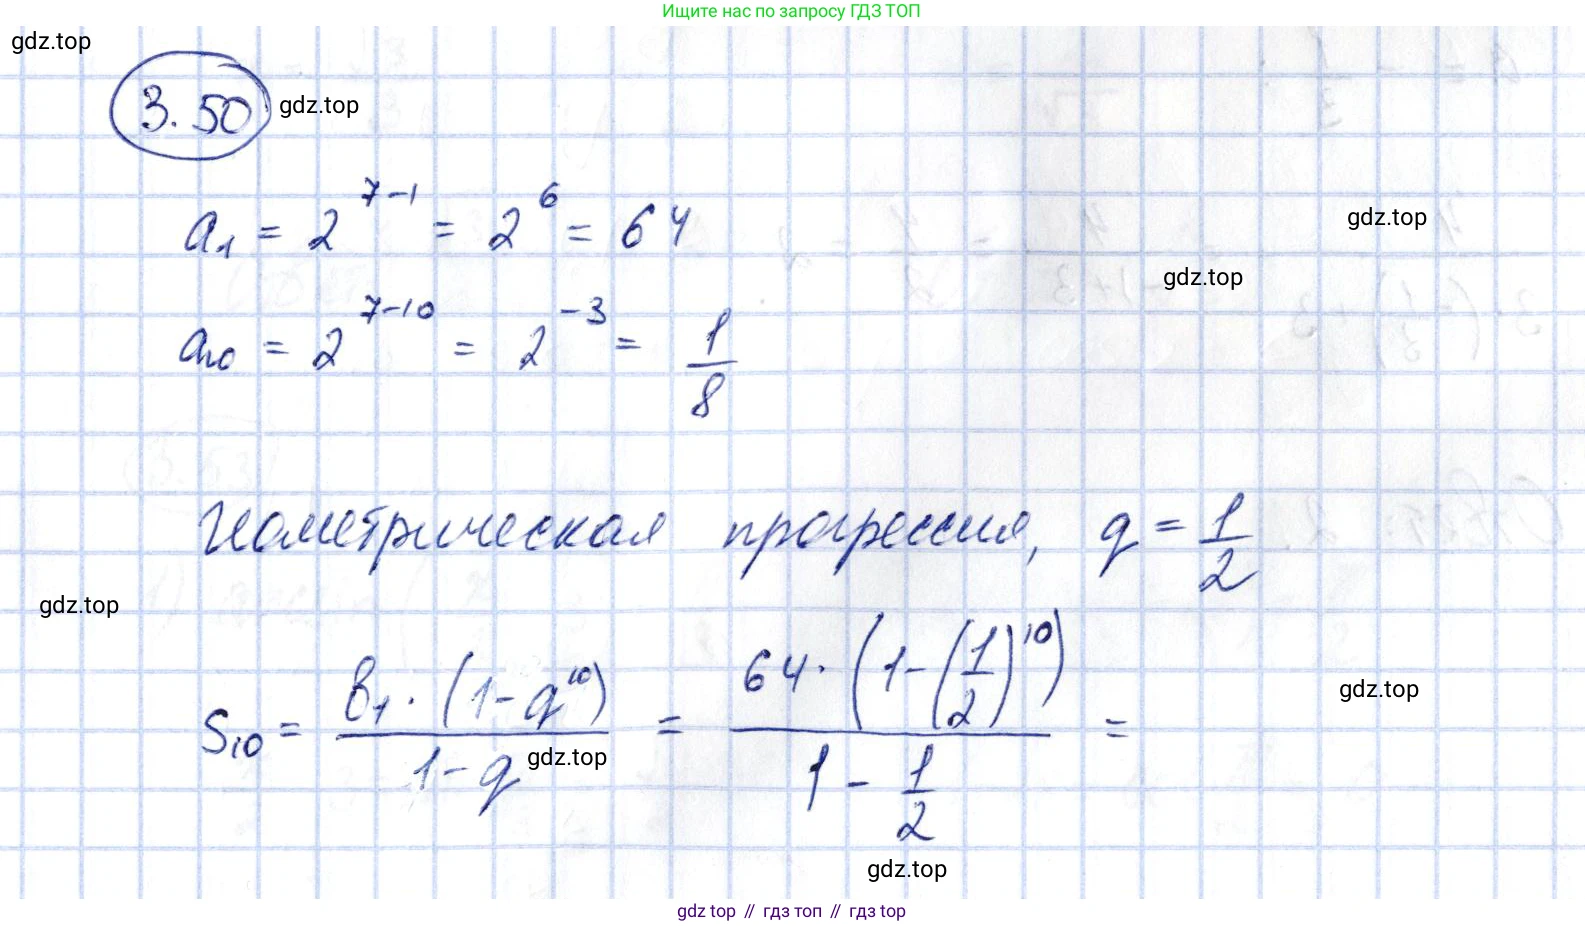 Ищите нас по запросу ГДЗ ТОП
gdz.top
3.50 gdz.top
a₁ = 2⁷⁻¹ = 2⁶ = 64
gdz.top
gdz.top
a₁₀ = 2⁷⁻¹⁰ = 2⁻³ = 1/8
Геометрическая прогрессия, q = 1/2
gdz.top
S₁₀ = b₁·(1-q¹⁰)/(1-q) = 64·(1-(1/2)¹⁰)/(1-1/2) =
gdz.top
gdz.top
gdz.top
gdz top // гдз топ // гдз top